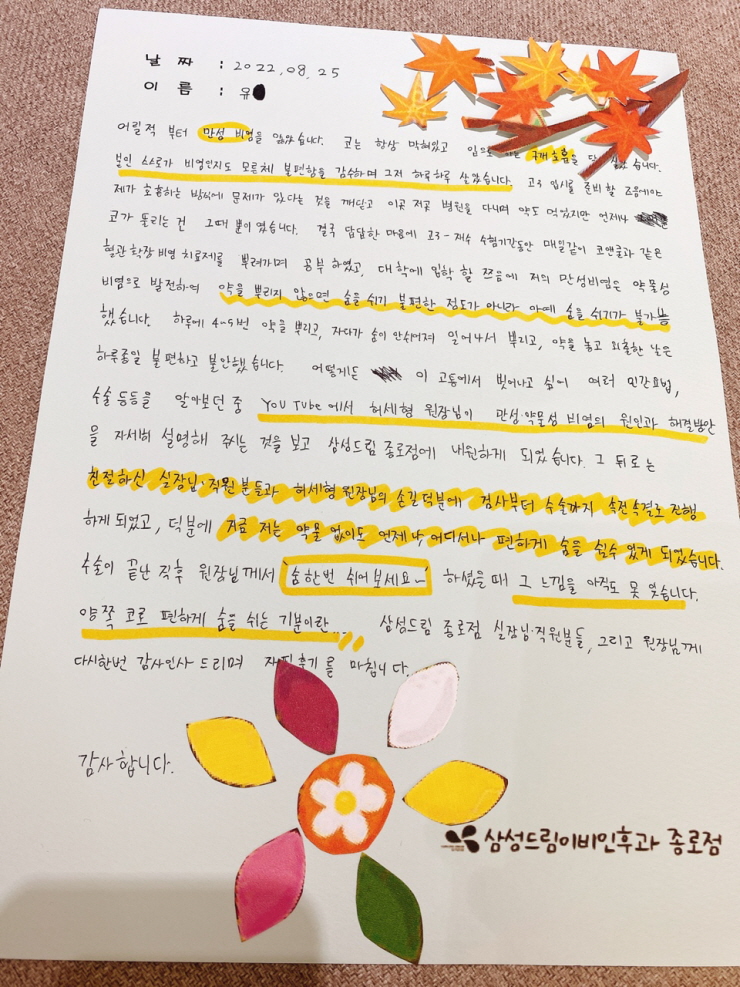 날 짜 : 2022.08.25
이 름 : 유
어릴적 부터 만성 비염을 앓았습니다. 코는 항상 막혀있고 입으로 구개호흡을 달 살았습니다.
본인 스스로가 비염인지도 모른체 불편함을 감수하며 그저 하루하루 살았습니다. 고3 입시를 준비할 즈음에야
제가 호흡하는 방식에 문제가 있다는 것을 깨닫고 이곳 저곳 병원을 다니며 약도 먹었지만 언제나
코가 뚫리는 건 그때 뿐이였습니다. 결국 답답한 마음에 고3-재수 수험기간동안 매일같이 코앤쿨과 같은
혈관 확장 비염 치료제를 뿌려가며 공부 하였고, 대학에 입학 할 쯔음에 저의 만성비염은 약물성
비염으로 발전하여 약을 뿌리지 않으면 숨을 쉬기 불편한 정도가 아니라 아예 숨을 쉬기가 불가능
했습니다. 하루에 4~5번 약을 뿌리고, 자다가 숨이 안쉬어져 일어나서 뿌리고, 약을 놓고 외출한 날은
하루종일 불편하고 불안했습니다. 어떻게든 이 고통에서 벗어나고 싶어 여러 민간요법,
수술 등등을 알아보던 중 YouTube에서 허세형 원장님이 만성·약물성 비염의 원인과 해결방안
을 자세히 설명해 주시는 것을 보고 삼성드림 종로점에 내원하게 되었습니다. 그 뒤로는
친절하신 실장님·직원 분들과 허세형 원장님의 손길 덕분에 검사부터 수술까지 속전속결로 진행
하게 되었고, 덕분에 지금 저는 약물 없이도 언제나, 어디서나 편하게 숨을 쉴수 있게 되었습니다.
수술이 끝난 직후 원장님께서 "숨한번 쉬어보세요~" 하셨을때 그 느낌을 아직도 못 잊습니다.
양쪽 코로 편하게 숨을 쉬는 기분이란... 삼성드림 종로점 실장님·직원분들, 그리고 원장님께
다시한번 감사인사 드리며 자필후기를 마칩니다.
감사합니다.
삼성드림이비인후과 종로점